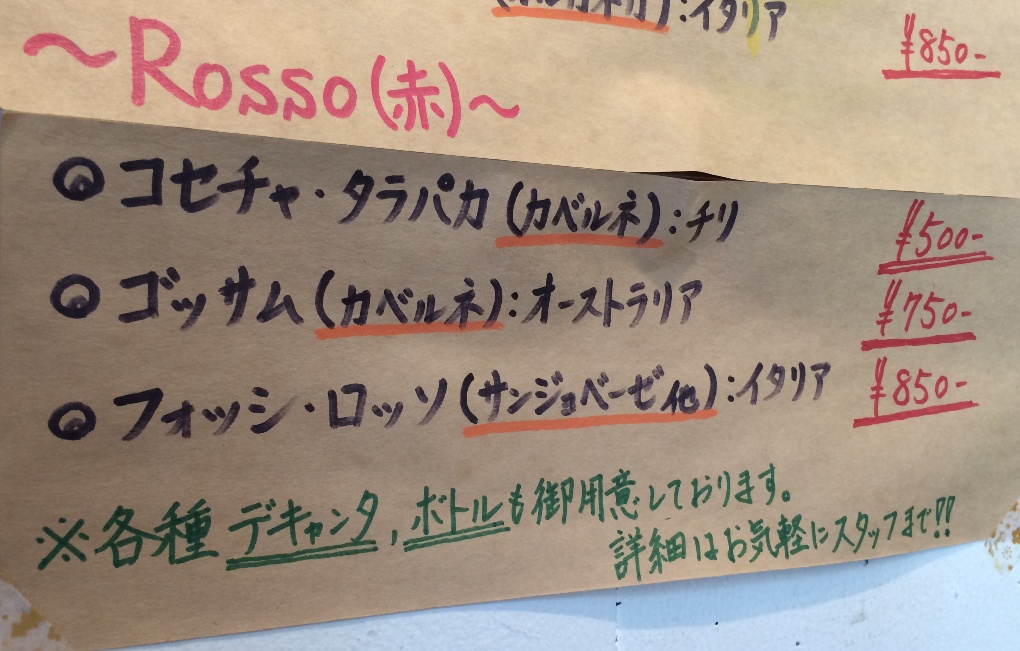 ：イタリア ¥850-
～Rosso(赤)～
◎コセチャ・タラパカ(カベルネ)：チリ ¥500-
◎ゴッサム(カベルネ)：オーストラリア ¥750-
◎フォッシ・ロッソ(サンジョベーゼ他)：イタリア ¥850-
※各種デキャンタ，ボトルも御用意しております。
詳細はお気軽にスタッフまで!!